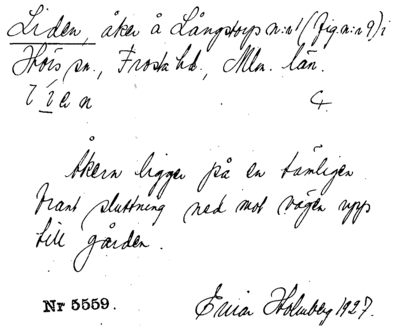 Liden, åker å Långstorps n:r 1 (fig. n:r 9) i
Hörs sn., Frosta hd., Mlm. län.
Åkern ligger på en tämligen
brant sluttning ned mot vägen upp
till gården.
Nr 5559.
Erica Holmberg 1927.